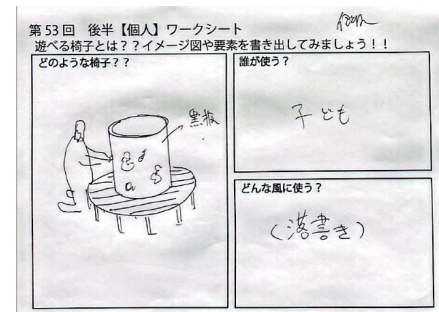 第53回 後半【個人】ワークシート
遊べる椅子とは??イメージ図や要素を書き出してみましょう!!
どのような椅子??
黒板
誰が使う?
子ども
どんな風に使う?
(落書き)